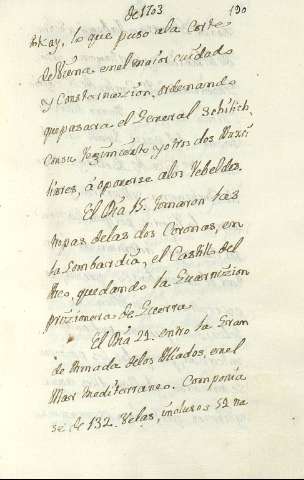 de 1703
190
tokay, lo que puso a la Corte
de Viena en el maior cuidado
y Consternazion, ordenando
que pasara el General Schlich,
con su regimiento y otros dos Auxi
liares, á oponerse a los rebeldes.
El Dia 15. tomaron las
tropas de las dos Coronas, en
la Lombardia, el Castillo del
Arco, quedando la Guarnizion
prizionera de Guerra.
El Dia 22. entró la Gran
de Armada de los Aliados, en el
Mar Mediterraneo. Componia
se de 132. Velas, inclusos 52 na